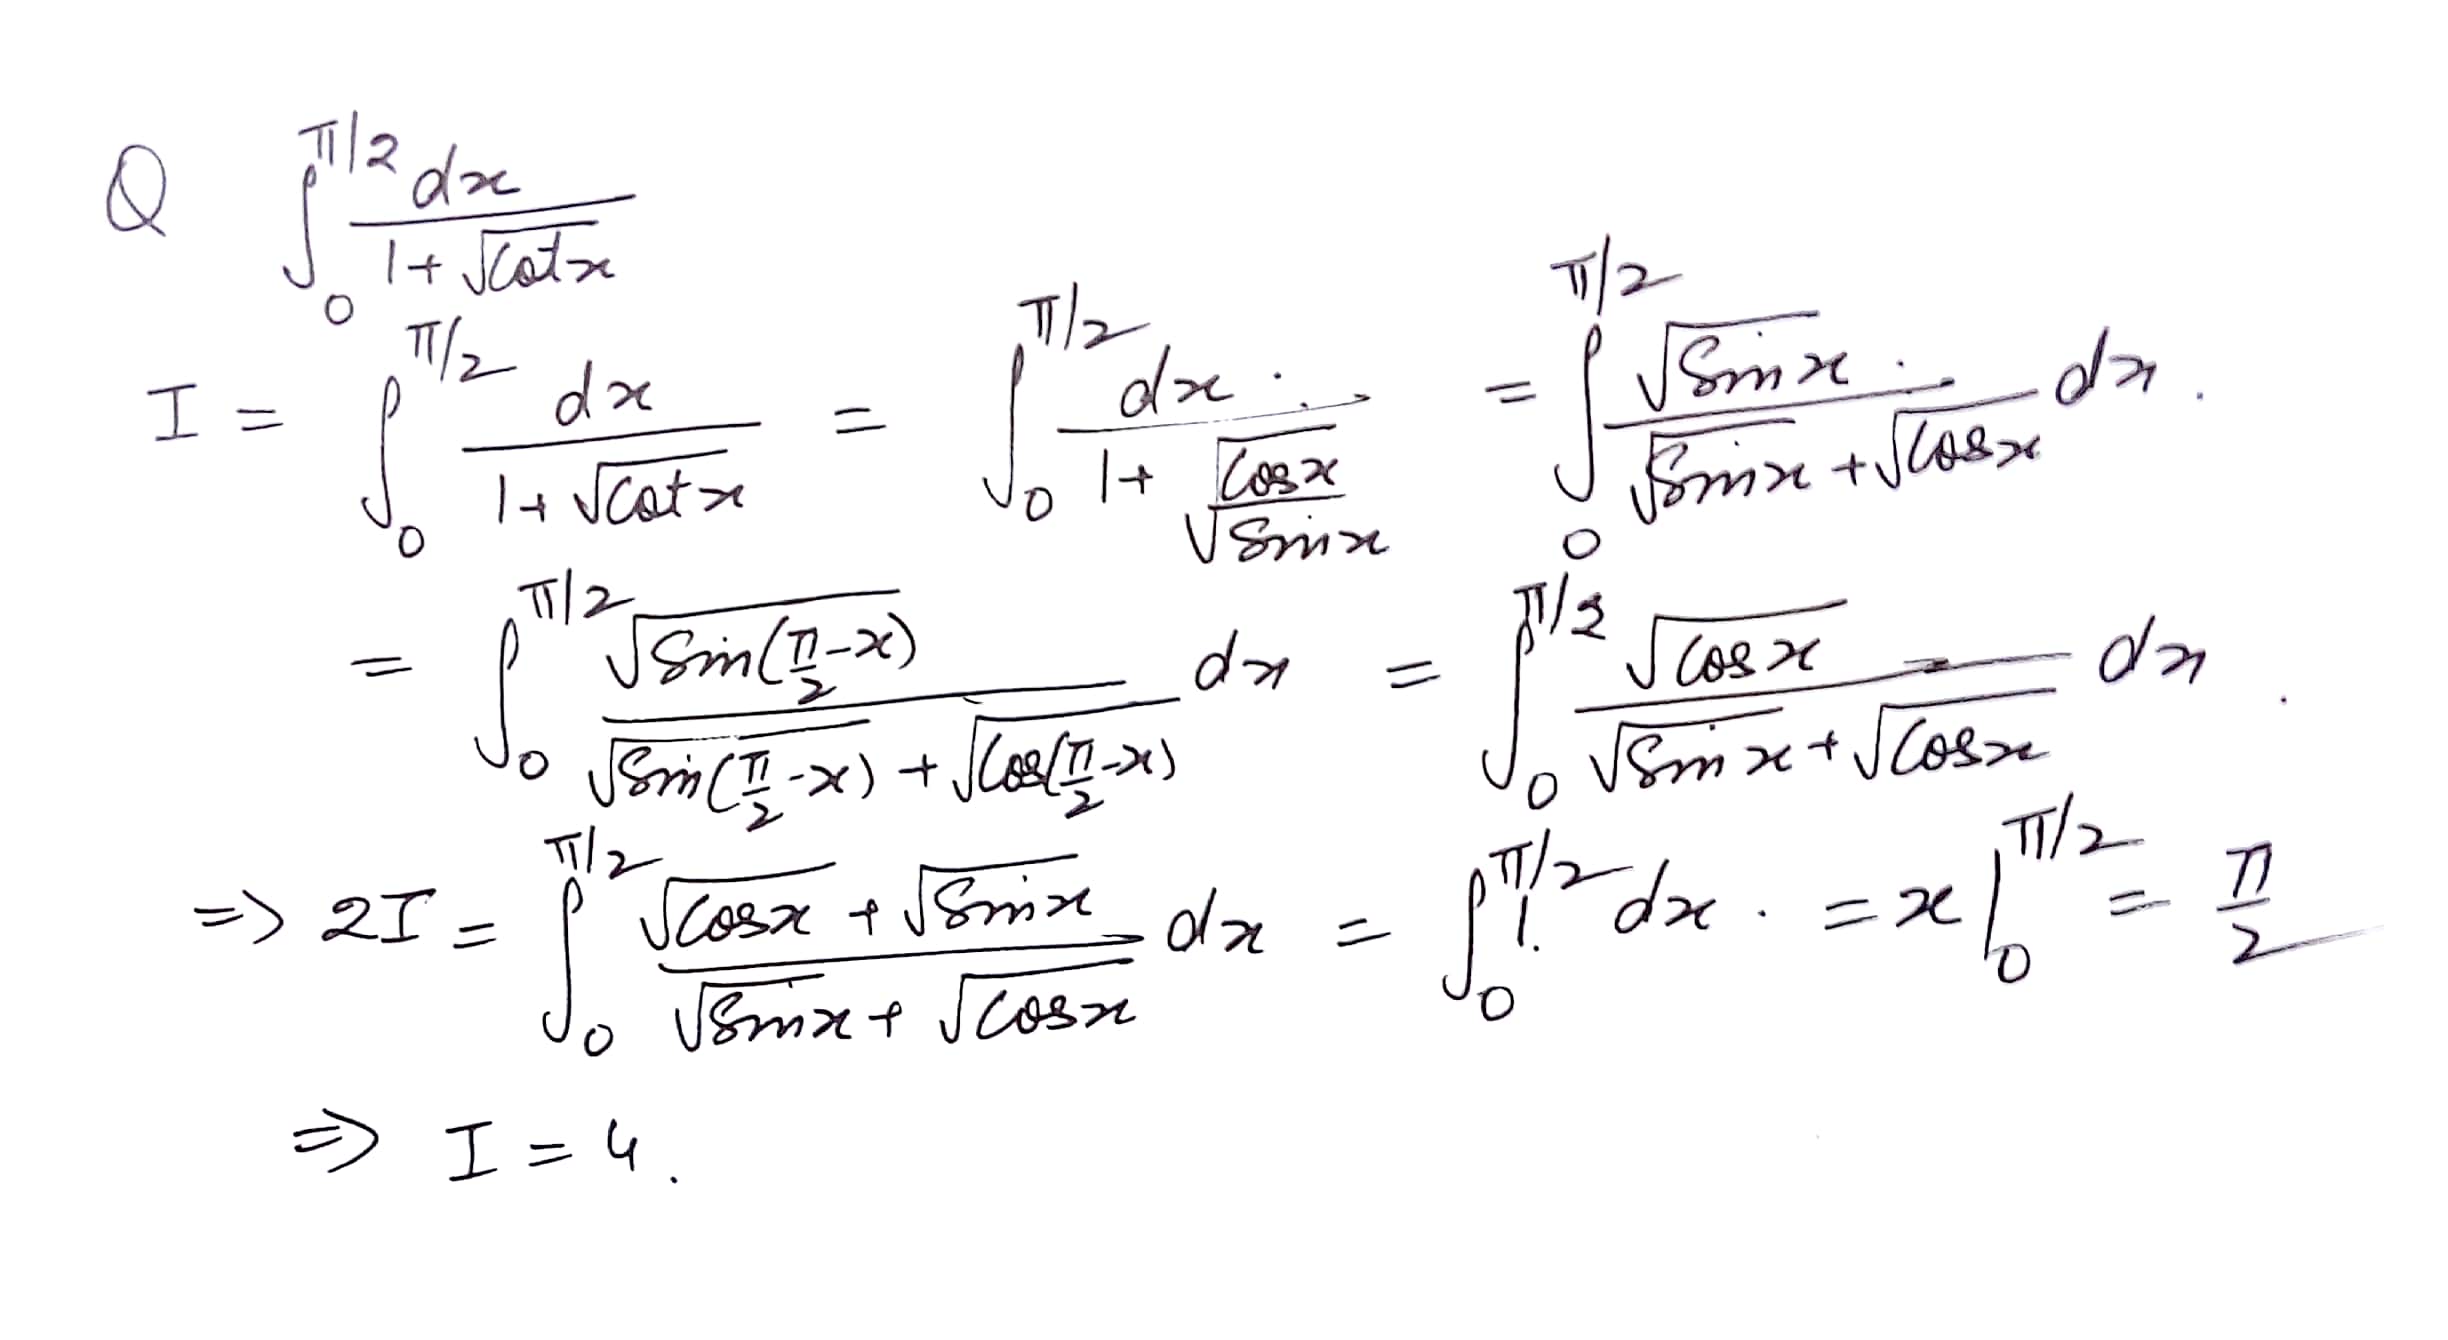 Q ∫₀^{π/2} dx / (1 + √cot x)
I = ∫₀^{π/2} dx / (1 + √cot x) = ∫₀^{π/2} dx / (1 + √cos x / √sin x) = ∫₀^{π/2} √sin x / (√sin x + √cos x) dx.
= ∫₀^{π/2} √sin(π/2 - x) / (√sin(π/2 - x) + √cos(π/2 - x)) dx = ∫₀^{π/2} √cos x / (√sin x + √cos x) dx.
=> 2I = ∫₀^{π/2} (√cos x + √sin x) / (√sin x + √cos x) dx = ∫₀^{π/2} 1. dx. = x |₀^{π/2} = π/2
=> I = 4.